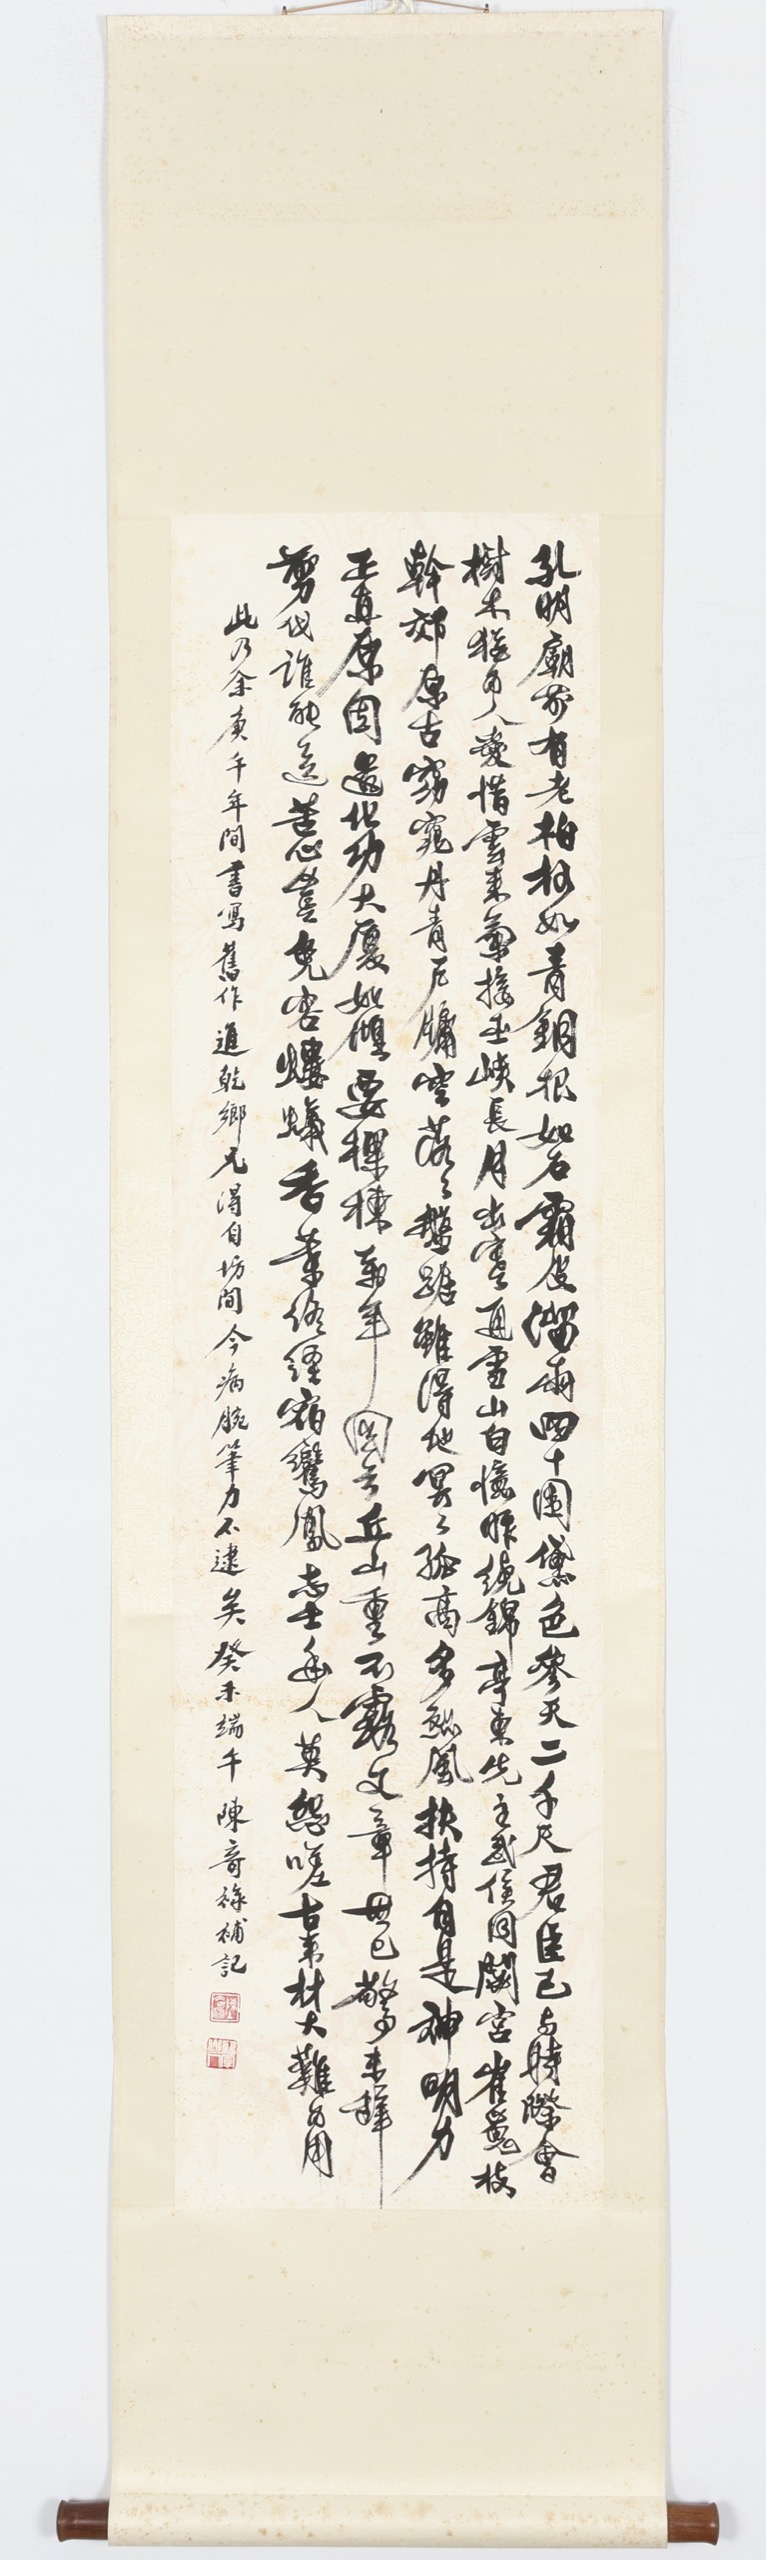 孔明廟前有老柏柯如青銅根如石霜皮溜雨四十圍黛色參天二千尺君臣已與時際會
樹木猶為人愛惜雲來氣接巫峽長月出寒通雪山白憶昨繞錦亭東先主武侯同閟宮崔嵬枝
幹郊原古窈窕丹青戶牖空落々盤踞雖得地冥々孤高多烈風扶持自是神明力
正直原因造化功大廈如傾要樑棟萬年回首丘山重不露文章世已驚未辭
剪伐誰能送苦心豈免容螻蟻香葉終經宿鸞鳳志士幽人莫怨嗟古來材大難為用
此乃余庚午年間書寫舊作進乾鄉兄得自坊間今病腕筆力不逮矣癸未端午陳奇祿補記